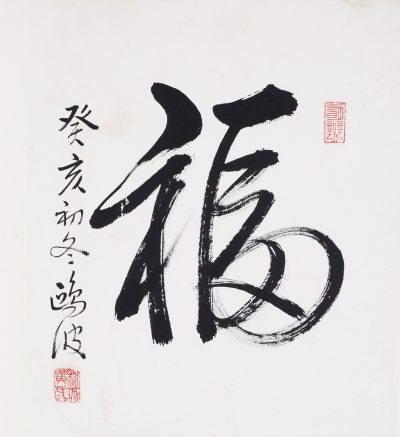 福
癸亥初冬鷗波